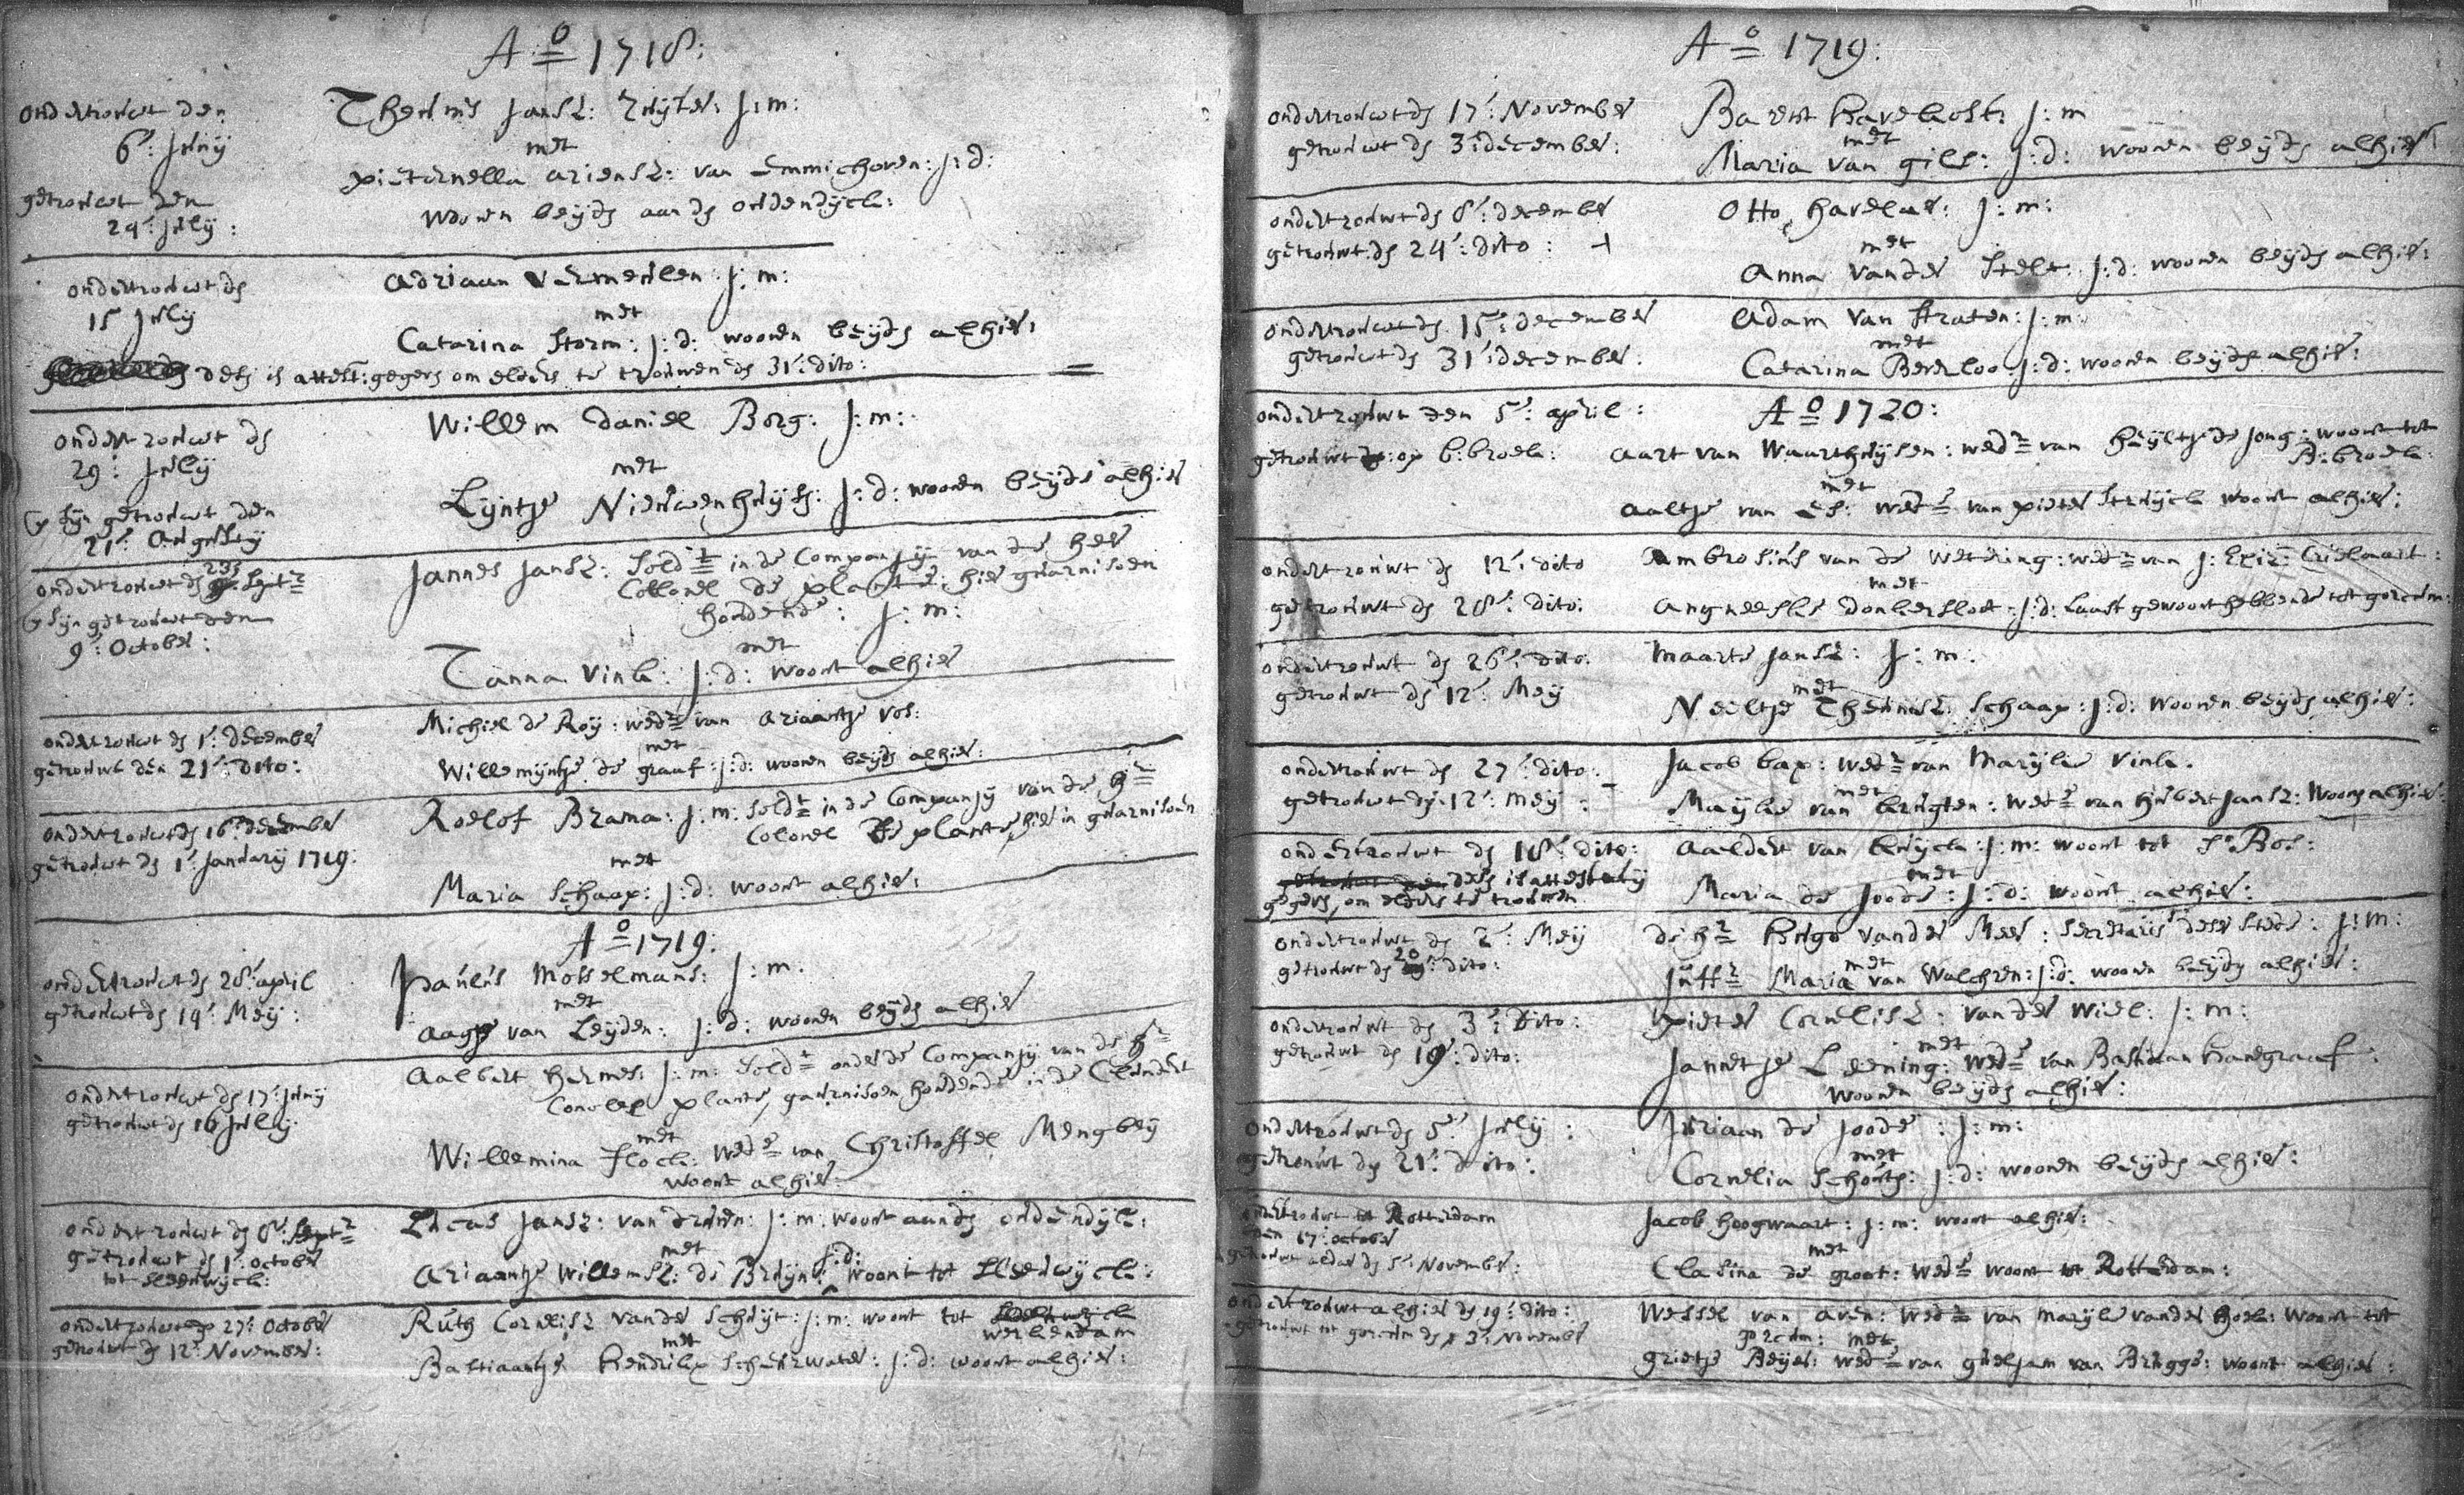 A:o 1718:
ondertrouwt den
6e: Junij
getrouwt den
24e: Julij:
Theunis Jansz: Ruijter: j:m:
met
pieternella ariensz: van Emmichoven: j:d:
woonen beijde aande oudendijck:
ondertrouwt de
15 Julij
Adriaan vermeulen: j:m:
met
Catarina Storm: j:d: woonen beijde alhier:
dese is attest: gegeve om elders te trouwen de 31e: dito:
ondertrouwt de
29e: Julij
sijn getrouwt den
21e: Augustij
Willem Daniel Borg: j:m:
met
Lijntje Nieuwenhuijse: j:d: woonen beijde alhier
ondertrouwt de 23e Septr
sijn getrouwt den
9e: October:
Jannes Jansz: Soldt in de Companij van de heer
Collonel de plante: hier guarnisoen
houdende: j:m:
met
Tanna Vink: j:d: woont alhier
ondertrouwt de 1e: December
getrouwt den 21e: dito:
Michiel de Roij: wedr van Ariaantje Vos:
met
Willemijntje de graaf: j:d: woonen beijde alhier:
ondertrouwt de 16e: december
getrouwt de 1e: Januarij 1719:
Roelof Brama: j:m: Soldt in de Companij van de hr
Colonel de plante, hier in guarnisoen
met
Maria Schaap: j:d: woont alhier:
A:o 1719:
ondertrouwt de 28e: april
getrouwt de 14e: Meij:
Paulus Mosselmans: j:m:
met
Aagje van Leijden: j:d: woonen beijde alhier
ondertrouwt de 17e: Junij
getrouwt de 16 Julij
Aalbert hermes: j:m: Soldt onder de Companij van de hr
Conolel plante, guarnisoen houdende in de Clundert
met
Willemina Flock: wede van Christoffel Mengbeij
woont alhier:
ondertrouwt de 8e: Septr
getrouwt de 1e: october
tot sleeuwijck:
Lucas Jansz: van drunen: j:m: woont aande oudendijk:
met
Ariaantje Willemsz: de Bruijn: j:d: woont tot Sleeuwijck:
ondertrouwt de 27e: October
getrouwt de 12e: November:
Ruth Cornelisz vander Schuijt: j:m: woont tot
werkendam
met
Bastiaantje Hendrikse Scheerwater: j:d: woont alhier:
A:o 1719:
ondertrouwt de 17e: November
getrouwt de 3e: december:
Barent Havelost: j:m
met
Maria van gils: j:d: woonen beijde alhier
ondertrouwt de 8e: december
getrouwt de 24e: dito:
Otto havelaer: j:m:
met
Anna vander Stelt: j:d: woonen beijde alhier:
ondertrouwt de 15e: december
getrouwt de 31e: december:
Adam van Straten: j:m:
met
Catarina Beverloo: j:d: woonen beijde alhier:
A:o 1720:
ondertrouwt den 5e: april:
getrouwt op b:broek:
Aart van Waarthuijsen: wedr van Heijltje de Jong: woont tot
B:broek:
met
Aaltje van Es: wede van pieter Struijck woont alhier:
ondertrouwt de 12e: dito
getrouwt de 28e: dito:
Ambrosius van de Wetering: wedr van J:
met
Angneesie Donkersloot: j:d: laast gewoont hebbende tot gorcum:
ondertrouwt de 26e: dito:
getrouwt de 12e: Meij
Maarte Jansz: j:m:
met
Neeltje Theunisz: Schaap: j:d: woonen beijde alhier:
ondertrouwt de 27e: dito:
getrouwt de 12e: Meij:
Jacob Cap: wedr van Marijke Vink.
met
Marijke van brugten: wede van huibert Jansz: woont alhier
ondertrouwt de 18e: dito:
dese is attestatij
gegeve, om elders te trouwen
Aeldert van Cuijck: j:m: woont tot S: Bos:
met
Maria de Joode: j:d: woont alhier:
ondertrouwt de 2e: Meij
getrouwt de 20 dito:
de hr Hugo vander Meer: Secretaris deser Stede: j:m:
met
Juffr Maria van Walchren: j:d: woonen beijde alhier:
ondertrouwt de 3e: dito:
getrouwt de 19e: dito:
Pieter Cornelisz: vander Wiel: j:m:
met
Jannetje Leening: wede van Bastiaan handgraaf:
woonen beijde alhier:
ondertrouwt de 5e: Julij:
getrouwt de 21e: dito:
Juriaan de Joode: j:m:
met
Cornelia Schouts: j:d: woonen beijde alhier:
ondertrouwt tot Rotterdam
den 17e: october
getrouwt aldaer de 5e: November:
Jacob hoogwaart: j:m: woont alhier:
met
Clasina de groot: wede woont tot Rotterdam:
ondertrouwt alhier de 19e: dito:
getrouwt tot gorcum de 3e: November
Wessel van aven: wedr van marijke vander hoek: woont tot
gorcum: met
grietje Beijer: wede van gueljam van Brugge: woont alhier: